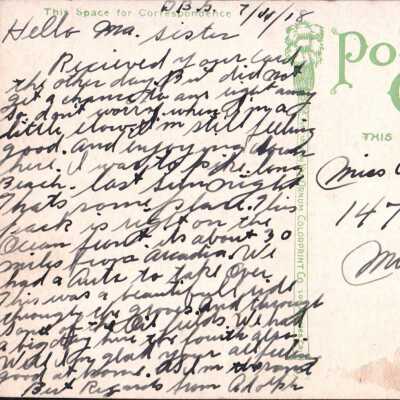 This Space for Correspondence
7/4/18
Hello Ma. Sister
Recieved your Card
the other day. But did not
get a chance to ans right away
So don't worry when I'm a
little slow. I'm still feeling
good. And enjoying down
here. I was to pike Long
Beach. last Sun night
Thats some place. This
is right on the
Ocean front its about 30
miles from Arcadia. We
had a Auto to take Over
This was a beautifull ride
through the groves. And through
Some of the Oil fields. We had
a big day here the fourth also.
Well I'm glad your all feeling
good at home. As I'm the same
Best Regards from Adolph
Po
C
THIS
Miss
147
M
VAN ORNUM COLORPRINT CO.
LOS